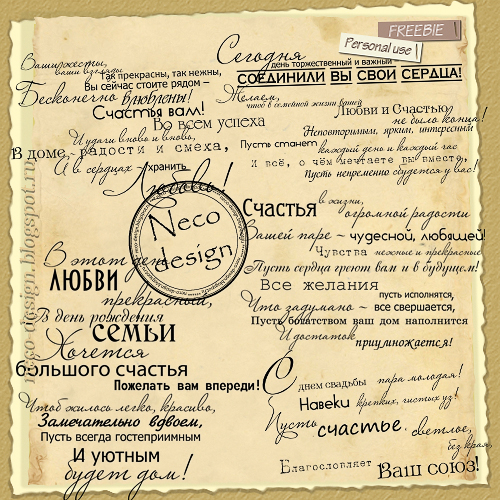 FREEBIE
Personal use
Ваши жесты,
ваши взгляды
Так прекрасны, так нежны,
Вы сейчас стоите рядом –
Бесконечно влюблены!
Счастья вам!
Во всем успеха
Удачи вновь и вновь,
В доме, - радости и смеха,
А в сердцах - хранить
Любовь!
Сегодня
день торжественный и важный
СОЕДИНИЛИ ВЫ СВОИ СЕРДЦА!
Желаем,
чтоб в семейной жизни вашей
Любви и Счастью
не было конца!
Неповторимым, ярким, интересным
Пусть станет каждый день и каждый час
И всё, о чём мечтаете вы вместе,
Пусть непременно сбудется у вас!
Neco
design
neco-design.blogspot.ru
Счастья в жизни,
огромной радости
Вашей паре – чудесной, любящей!
Чувства нежные и прекрасные
Пусть сердца греют вам и в будущем!
Все желания
пусть исполнятся,
Что задумано – все свершается,
Пусть богатством ваш дом наполнится
И достаток
приумножается!
В этот день
ЛЮБВИ
прекрасный,
В день рождения
семьи
Хочется
большого счастья
Пожелать вам впереди!
Чтоб жилось легко, красиво,
Замечательно вдвоем,
Пусть всегда гостеприимным
И уютным
будет дом!
С
днем свадьбы пара молодая!
Навеки крепких, чистых уз!
Пусть счастье, светлое,
без края,
Благословляет Ваш союз!